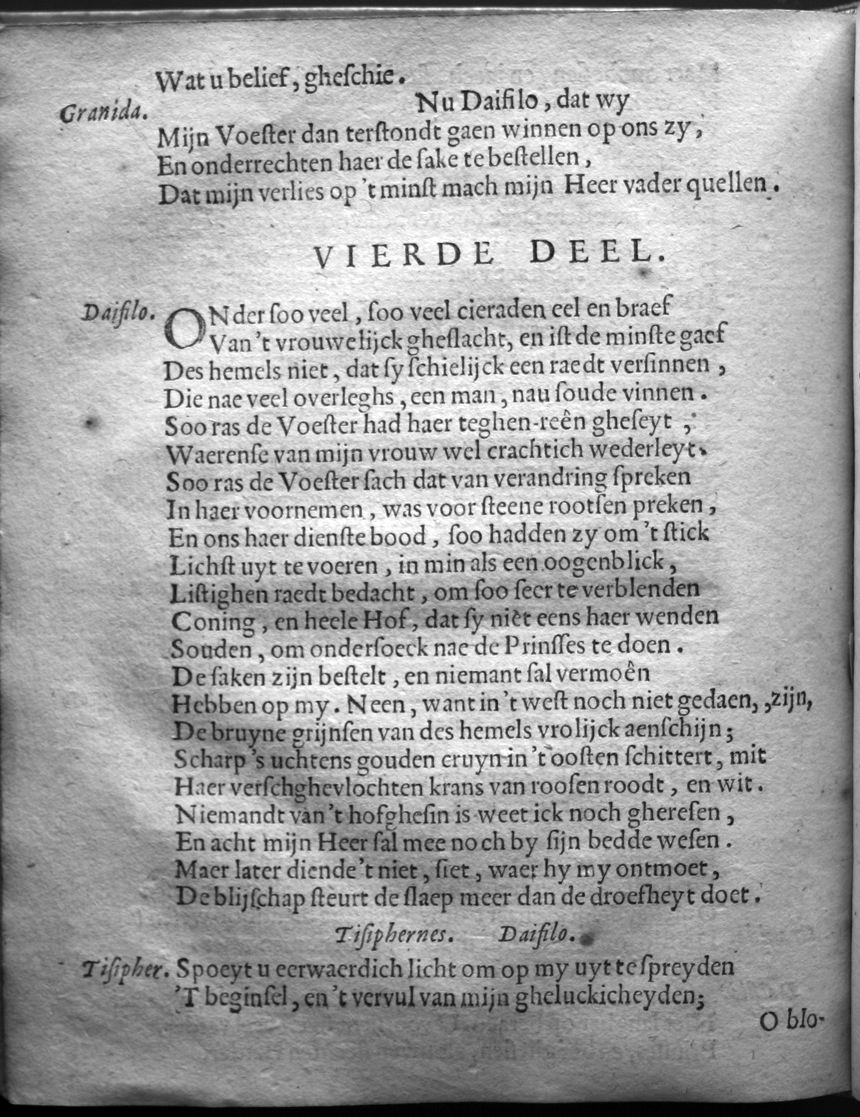 Wat u belief, gheſchie.
Granida. Nu Daifilo, dat wy
Mijn Voeſter dan terſtondt gaen winnen op ons zy,
En onderrechten haer de ſake te beſtellen,
Dat mijn verlies op 't minſt mach mijn Heer vader quellen.
VIERDE DEEL.
Daifilo. ONder ſoo veel, ſoo veel cieraden eel en braef
Van 't vrouwelijck gheſlacht, en iſt de minſte gaef
Des hemels niet, dat ſy ſchielijck een raedt verſinnen,
Die nae veel overleghs, een man, nau ſoude vinnen.
Soo ras de Voeſter had haer teghen-reên gheſeyt,
Waerenſe van mijn vrouw wel crachtich wederleyt.
Soo ras de Voeſter ſach dat van verandring ſpreken
In haer voornemen, was voor ſteene rootſen preken,
En ons haer dienſte bood, ſoo hadden zy om 't ſtick
Lichſt uyt te voeren, in min als een oogenblick,
Liſtighen raedt bedacht, om ſoo ſeer te verblenden
Coning, en heele Hof, dat ſy niet eens haer wenden
Souden, om onderſoeck nae de Prinſſes te doen.
De ſaken zijn beſtelt, en niemant ſal vermoên
Hebben op my. Neen, want in 't weſt noch niet gedaen, ,zijn,
De bruyne grijnſen van des hemels vrolijck aenſchijn;
Scharp 's uchtens gouden cruyn in 't ooſten ſchittert, mit
Haer verſchghevlochten krans van rooſen roodt, en wit.
Niemandt van 't hofgheſin is weet ick noch ghereſen,
En acht mijn Heer ſal mee noch by ſijn bedde weſen.
Maer later diende 't niet, ſiet, waer hy my ontmoet,
De blijſchap ſteurt de ſlaep meer dan de droefheyt doet.
Tiſiphernes. Daifilo.
Tiſipher. Spoeyt u eerwaerdich licht om op my uyt te ſpreyden
'T beginſel, en 't vervul van mijn gheluckicheyden;
O blo-